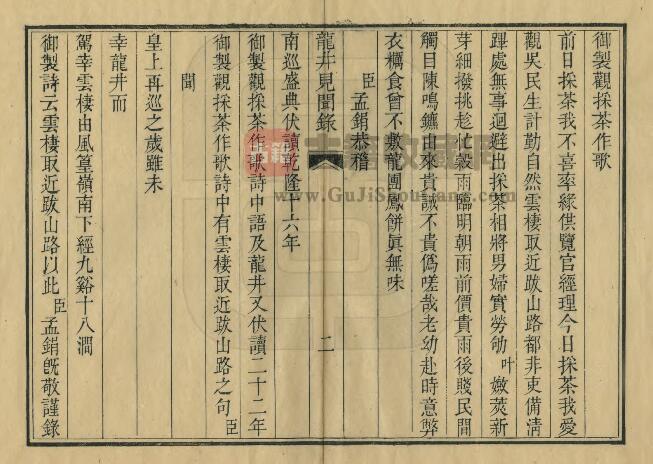 御製觀採茶作歌
前日採茶我不喜率緣供覽官經理今日採茶我愛
觀吳民生計勤自然雲棲取近跋山路都非吏備清
蹕處無事迴避出採茶相將男婦實勞劬叶嫩莢新
芽細撥挑趁忙穀雨臨明朝雨前價貴雨後賤民艱
觸目陳鳴鑣由來貴誠不貴偽嗟哉老幼赴時意弊
衣糲食曾不敷龍團鳳餅眞無味
臣孟鋗恭稽
龍井見聞錄 二
南巡盛典伏讀乾隆十六年
御製觀採茶作歌詩中語及龍井又伏讀二十二年
御製觀採茶作歌詩中有雲棲取近跋山路之句臣
聞
皇上再巡之歲雖未
幸龍井而
駕幸雲棲由風篁嶺南下經九谿十八澗
御製詩云雲棲取近跋山路以此臣孟鋗旣敬謹錄
古籍收藏网
www.GuJiShouCang.com